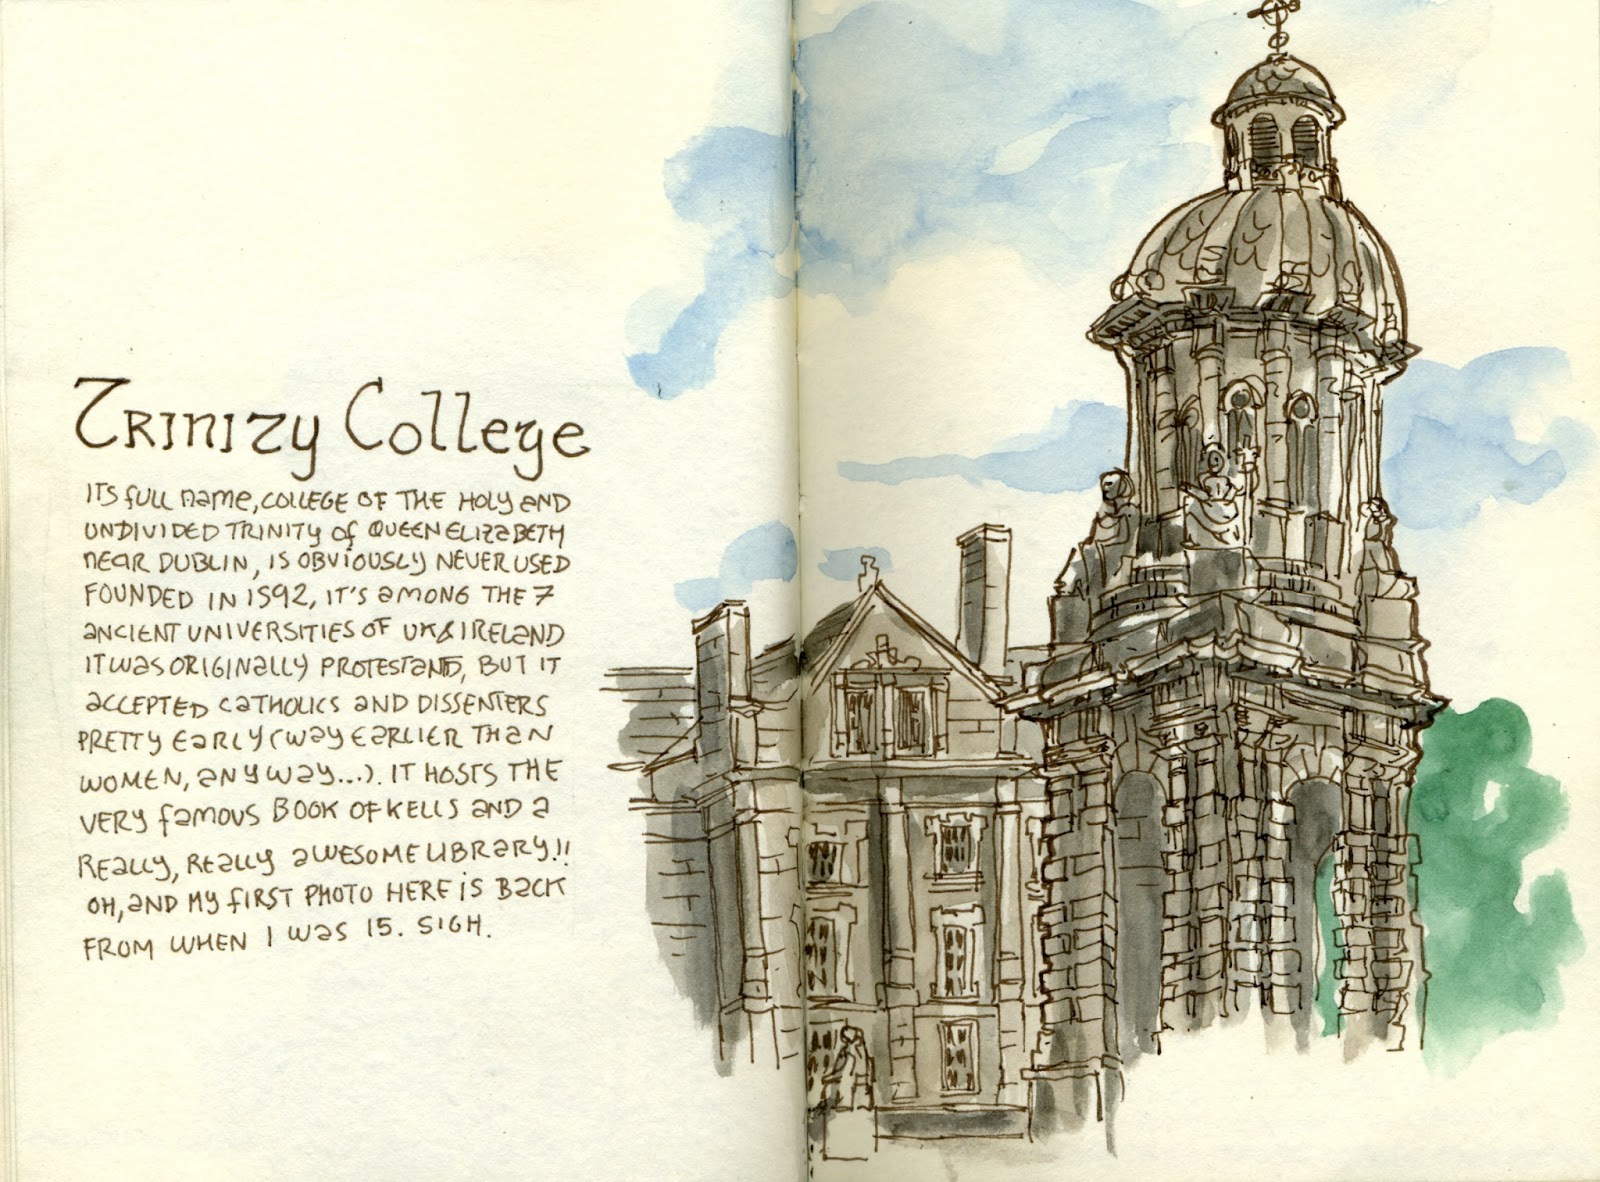 Trinity College
ITS FULL NAME, COLLEGE OF THE HOLY AND
UNDIVIDED TRINITY OF QUEEN ELIZABETH
NEAR DUBLIN, IS OBVIOUSLY NEVER USED
FOUNDED IN 1592, IT'S AMONG THE 7
ANCIENT UNIVERSITIES OF UK & IRELAND
IT WAS ORIGINALLY PROTESTANT, BUT IT
ACCEPTED CATHOLICS AND DISSENTERS
PRETTY EARLY (WAY EARLIER THAN
WOMEN, ANYWAY...). IT HOSTS THE
VERY FAMOUS BOOK OF KELLS AND A
REALLY, REALLY AWESOME LIBRARY!!
OH, AND MY FIRST PHOTO HERE IS BACK
FROM WHEN I WAS 15. SIGH.